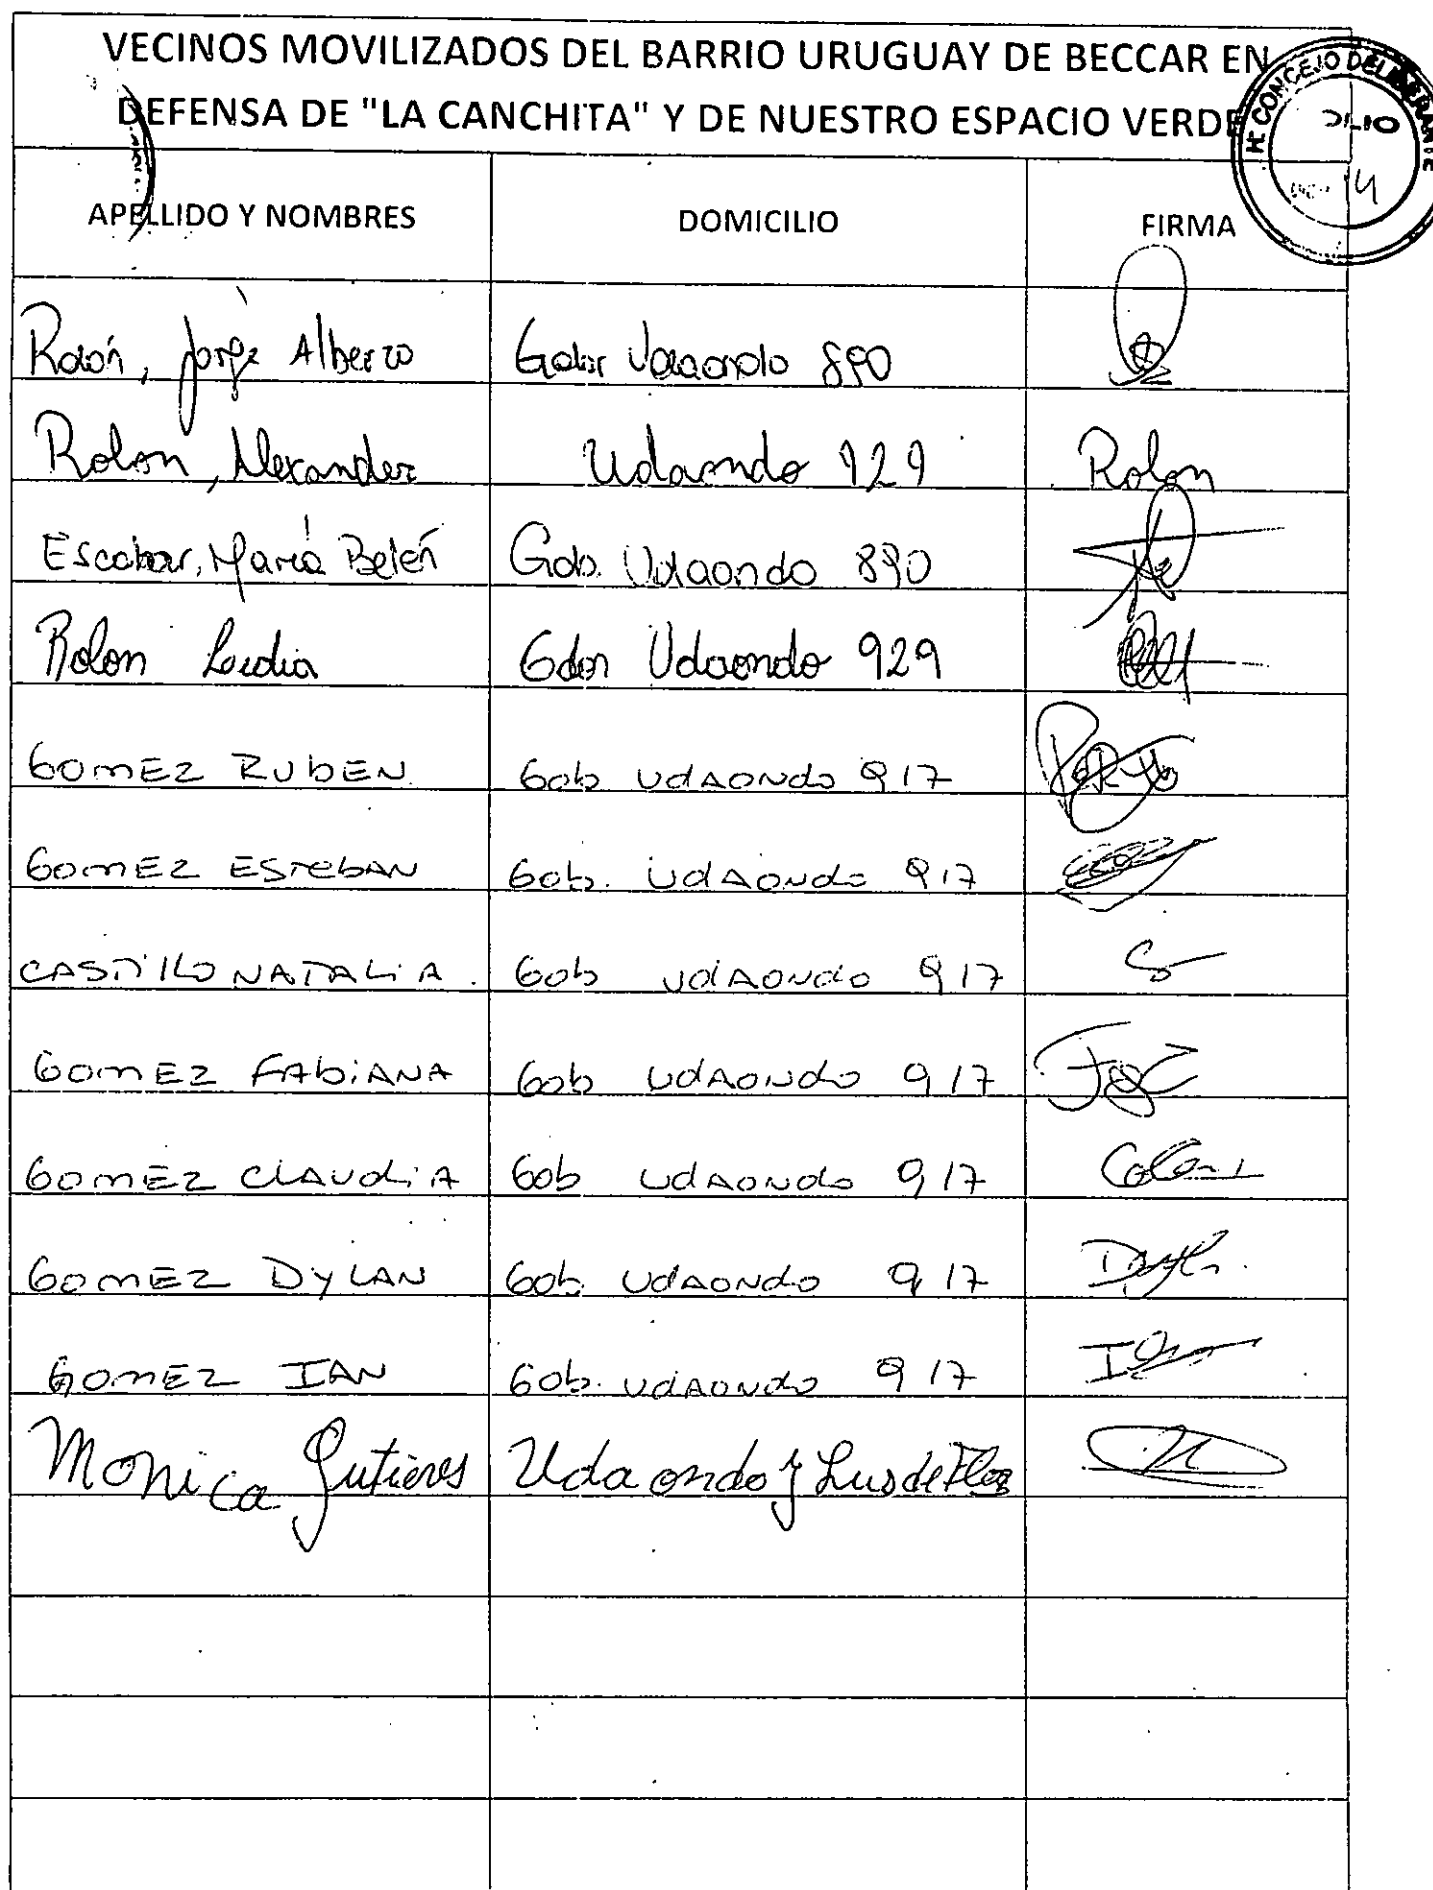 VECINOS MOVILIZADOS DEL BARRIO URUGUAY DE BECCAR EN
DEFENSA DE "LA CANCHITA" Y DE NUESTRO ESPACIO VERDE
Hº CONCEJO DELIBERANTE
14
APELLIDO Y NOMBRES DOMICILIO FIRMA
Rolón, Jorge Alberto Udaondo 890
Rolon, Alexander Udaondo 929 Rolon
Escobar, María Belén Gob. Udaondo 890
Rolon Lidia Gdor Udaondo 929
GOMEZ RUBEN. Gob UdAONdo 917
GOMEZ ESTEbAN Gob. UdAONdo 917
CASTillO NATALiA. Gob UdAONdo 917
GOMEZ FAbiANA Gob UdAONdo 917
GOMEZ ClAUdiA Gob UdAONdo 917
GOMEZ DyLAN Gob. UdAONdo 917
GOMEZ IAN Gob. UdAONdo 917
Monica Gutieres Udaondo y